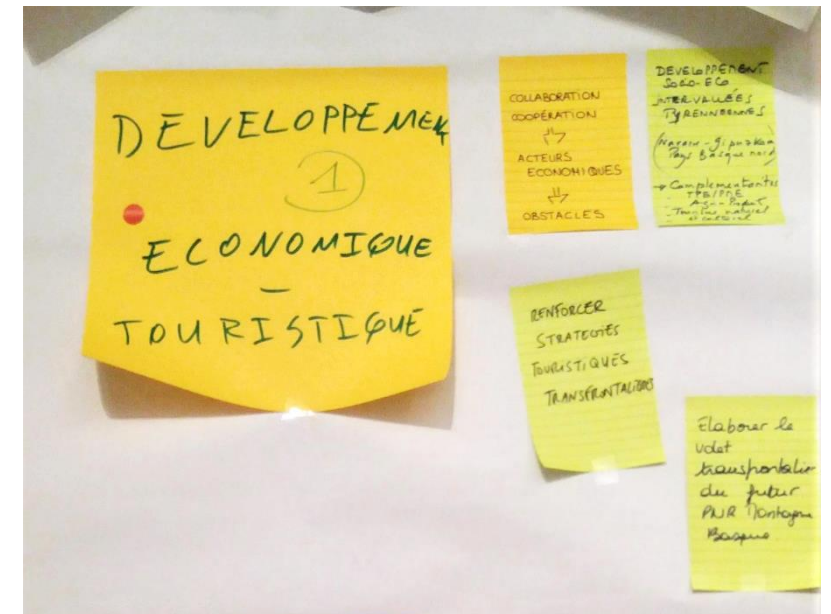 DEVELOPPEMEN
1
ECONOMIQUE
-
TOURISTIQUE
COLLABORATION
COOPÉRATION
ACTEURS
ECONOMIQUES
OBSTACLES
DEVELOPPEMENT
SOCIO-ECO
INTERVALLÉES
PYRENNENNES
(Navarre - Gipuzkoa
Pays Basque nord)
→ Complémentarités
TPE/PME
- Agri-
- Tourisme naturel
et culturel
RENFORCER
STRATEGIES
TOURISTIQUES
TRANSFRONTALIERES
Elaborer le
volet
transfrontalier
du futur
PNR Montagne
Basque